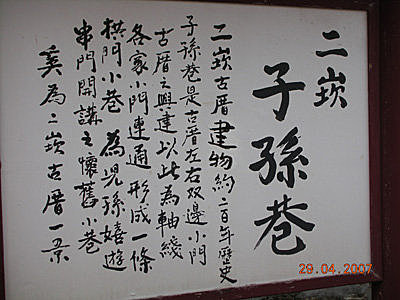 二崁
子孫巷
二崁古厝建物約二百年歷史
子孫巷是古厝左右双邊小門
古厝之興建以此為軸綫
各家小門連通形成一條
拱門小巷為児孫嬉遊
串門開講之懷舊小巷
奚為二崁古厝一景
29.04.2007